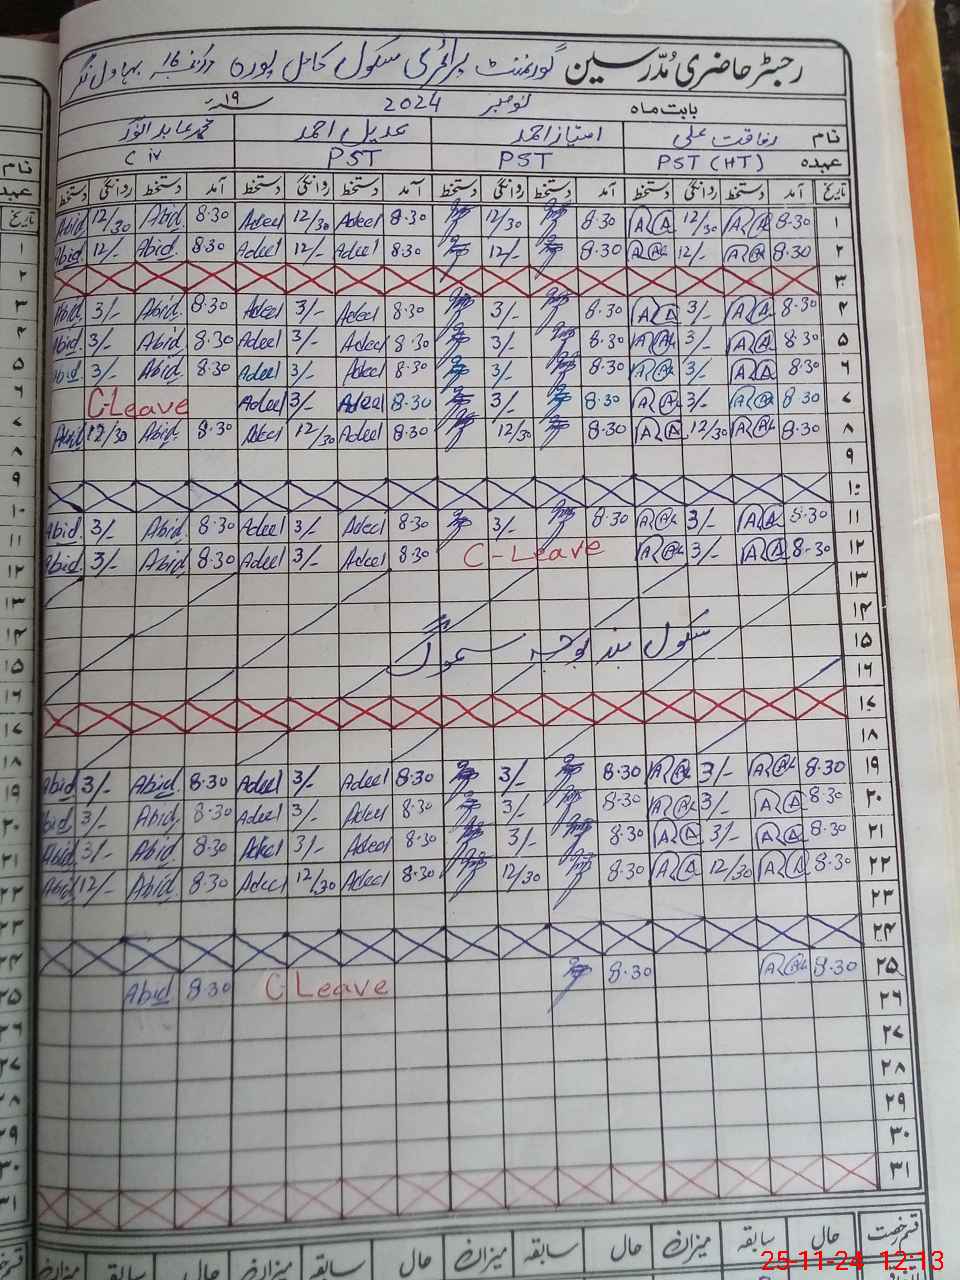 رجسٹر حاضری مُدّرسین گورنمنٹ پرائمری سکول کامل پورہ
بابت ماہ نومبر 2024 ۱۹
نام رفاقت علی امتیاز احمد عدیل احمد محمد عابد انور
عہدہ PST (HT) PST PST C iv
تاریخ آمد دستخط روانگی دستخط آمد دستخط روانگی دستخط آمد دستخط روانگی دستخط آمد دستخط روانگی دستخط
۱ 8.30 12/30 8.30 12/30 8.30 Adeel 12/30 Adeel 8.30 Abid 12/30 Abid
۲ 8.30 12/- 8.30 12/- 8.30 Adeel 12/- Adeel 8.30 Abid 12/- Abid
۳
۴ 8.30 3/- 8.30 3/- 8.30 Adeel 3/- Adeel 8.30 Abid 3/- Abid
۵ 8.30 3/- 8.30 3/- 8.30 Adeel 3/- Adeel 8.30 Abid 3/- Abid
۶ 8.30 3/- 8.30 3/- 8.30 Adeel 3/- Adeel 8.30 Abid 3/- Abid
۷ 8.30 3/- 8.30 3/- 8.30 Adeel 3/- Adeel C-Leave
۸ 8.30 12/30 8.30 12/30 8.30 Adeel 12/30 Adeel 8.30 Abid 12/30 Abid
۹
۱۰
۱۱ 8.30 3/- 8.30 3/- 8.30 Adeel 3/- Adeel 8.30 Abid 3/- Abid
۱۲ 8.30 3/- C-Leave 8.30 Adeel 3/- Adeel 8.30 Abid 3/- Abid
۱۳
۱۴
۱۵ سکول بند بوجہ سموگ
۱۶
۱۷
۱۸
۱۹ 8.30 3/- 8.30 3/- 8.30 Adeel 3/- Adeel 8.30 Abid 3/- Abid
۲۰ 8.30 3/- 8.30 3/- 8.30 Adeel 3/- Adeel 8.30 Abid 3/- Abid
۲۱ 8.30 3/- 8.30 3/- 8.30 Adeel 3/- Adeel 8.30 Abid 3/- Abid
۲۲ 8.30 12/30 8.30 12/30 8.30 Adeel 12/30 Adeel 8.30 Abid 12/- Abid
۲۳
۲۴
۲۵ 8.30 8.30 C Leave 8.30 Abid
۲۶
۲۷
۲۸
۲۹
۳۰
۳۱
قسم رخصت حال سابقہ میزان حال سابقہ میزان حال سابقہ میزان حال سابقہ میزان
25-11-24 12:13